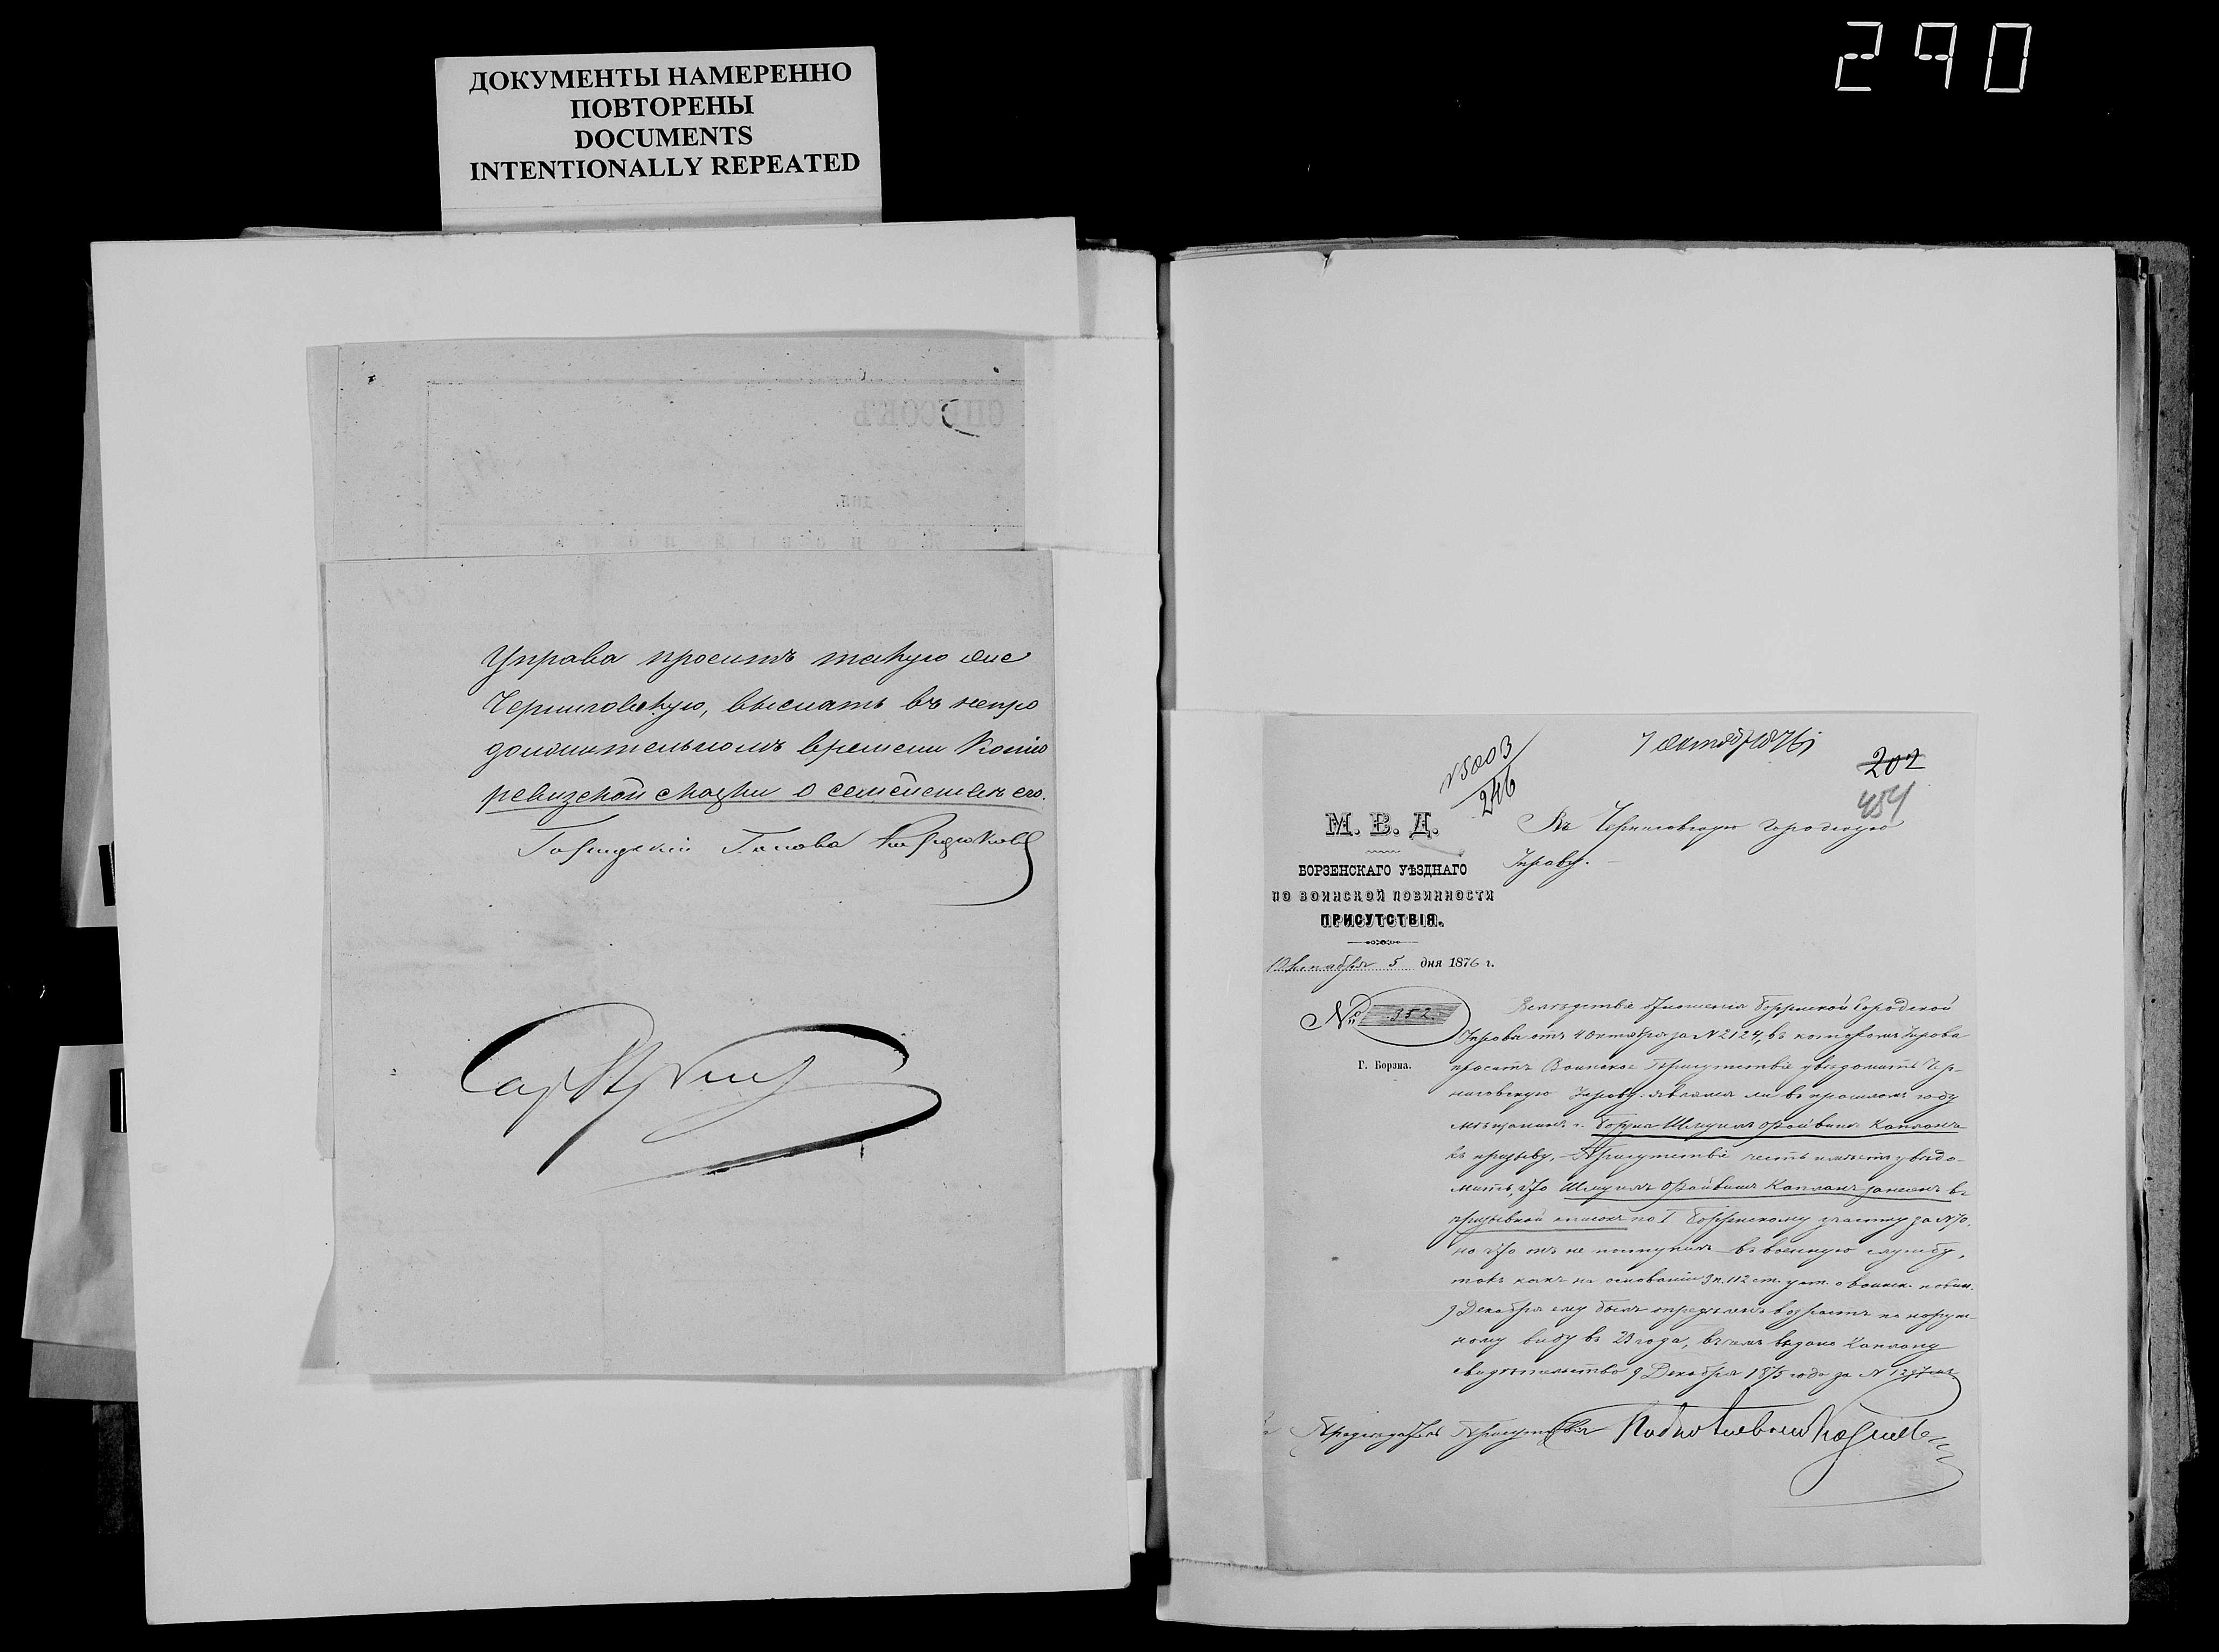 290
ДОКУМЕНТЫ НАМЕРЕННО
ПОВТОРЕНЫ
DOCUMENTS
INTENTIONALLY REPEATED
СПИСОКЪ
Управа проситъ такую же
Черниговскую, выслать въ непро
должительномъ времени копію
ревизской сказки о семействѣ его.
Городской Голова
7 Октяб 1876
№ 5003
246
202
454
М. В. Д.
Въ Черниговскую Городскую
Управу.
БОРЗЕНСКАГО УѢЗДНАГО
ПО ВОИНСКОЙ ПОВИННОСТИ
ПРИСУТСТВІЯ.
Октября 5 дня 1876 г.
№ 352
Г. Борзна.
Вслѣдствіе отношенія Борзенской Городской
Управы отъ 4 Октября за № 2124, въ которомъ Управа
проситъ Воинское Присутствіе увѣдомить Чер-
ниговскую Управу: являлся ли въ прошломъ году
мѣщанинъ г. Борзны Шмуилъ Файвишъ Капланъ
къ призыву, – Присутствіе честь имѣетъ увѣдо-
мить, что Шмуилъ Файвишъ Капланъ занесенъ въ
призывной списокъ по I Борзенскому участку за № 70,
но что онъ не поступилъ въ военную службу,
такъ какъ на основаніи 3 п. 112 ст. уст. о воинск. повин.
9 Декабря ему былъ опредѣленъ возрастъ по наруж-
ному виду въ 23 года, въ чемъ выдано Каплану
свидѣтельство 9 Декабря 1875 года за №
Предсѣдатель Присутствія